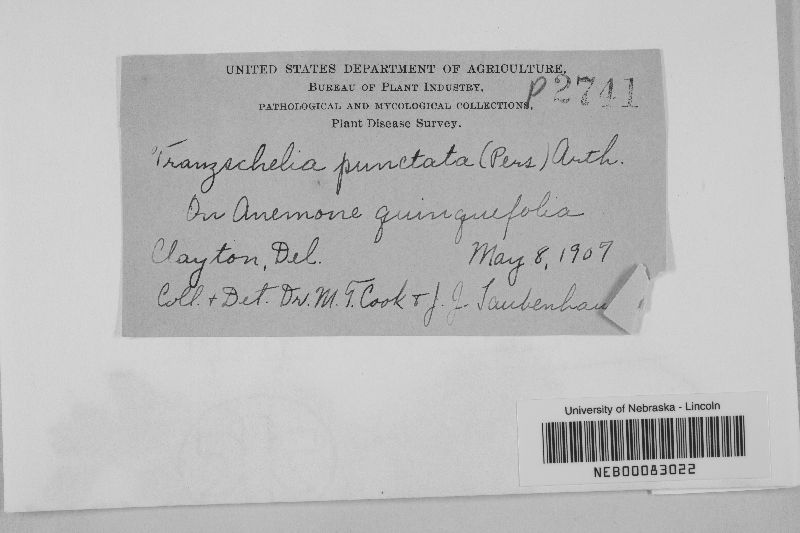 UNITED STATES DEPARTMENT OF AGRICULTURE,
BUREAU OF PLANT INDUSTRY,
PATHOLOGICAL AND MYCOLOGICAL COLLECTIONS,
P2741
Plant Disease Survey.
Tranzschelia punctata (Pers) Arth.
On Anemone quinquefolia
Clayton, Del. May 8, 1907
Coll. + Det. Dr. M. T. Cook + J. J. Taubenhau
University of Nebraska - Lincoln
NEB00083022